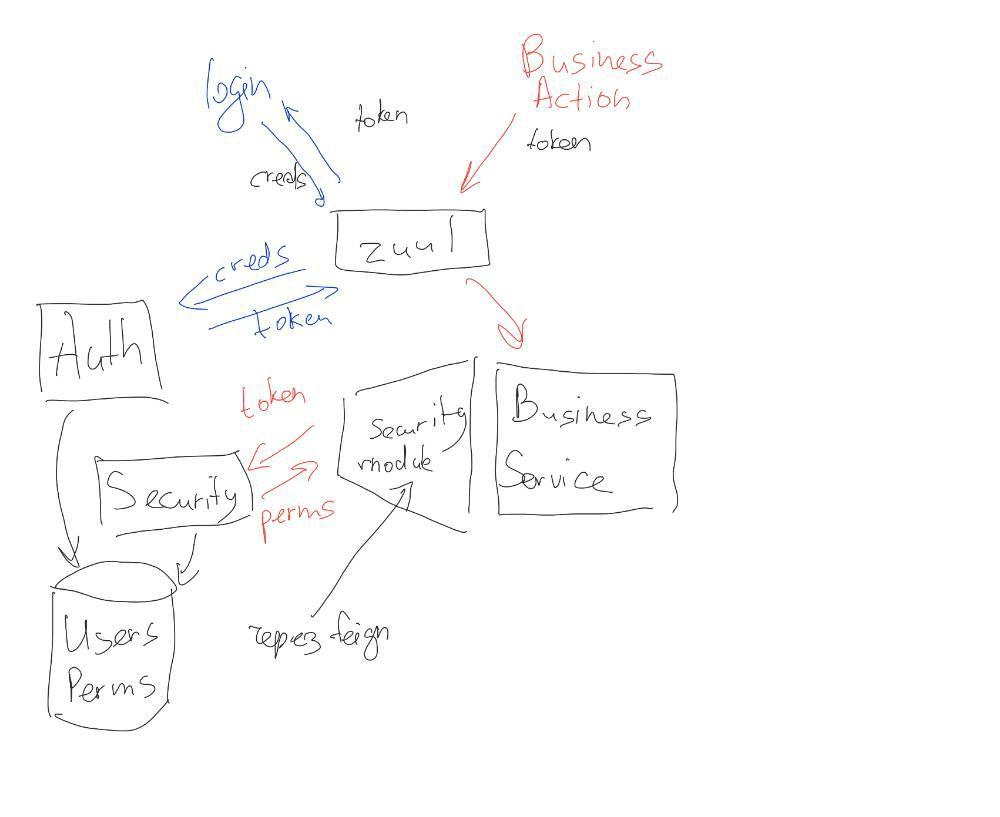 login
token
creds
Business
Action
token
zuul
creds
token
Auth
token
Security
module
Business
Service
Security
perms
через feign
Users
Perms